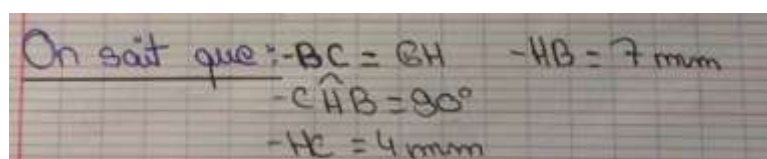 On sait que :-BC = GH -HB = 7 mm
-CĤB = 90°
-HC = 4 mm